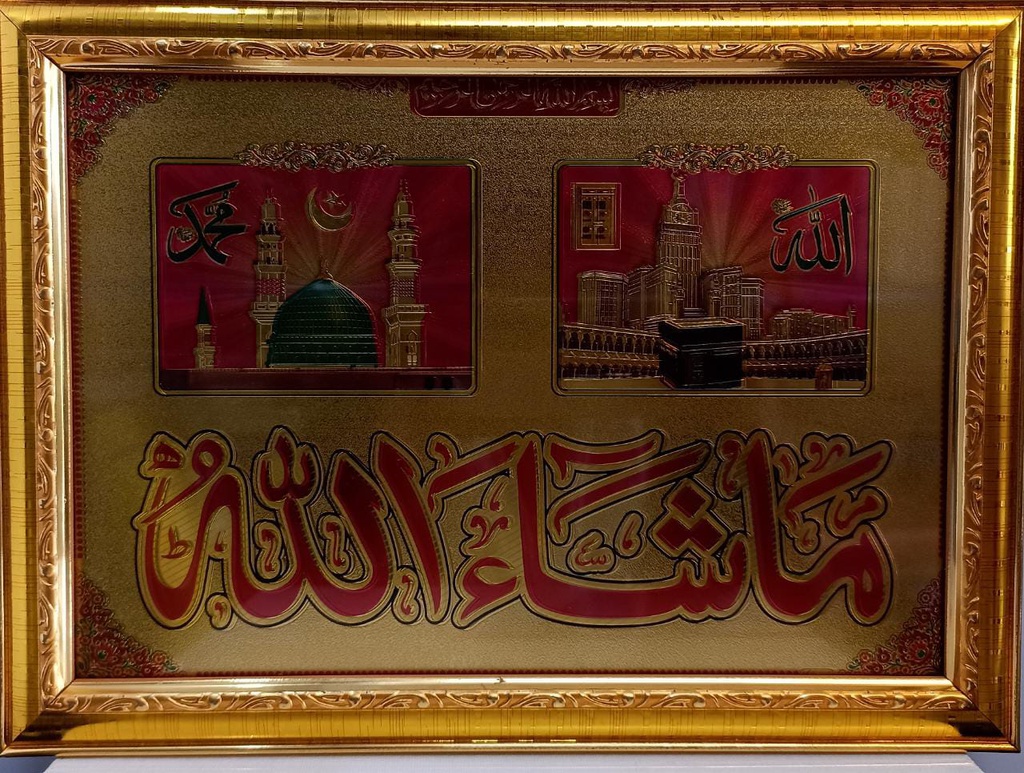 بسم الله الرحمن الرحيم
الله
محمد
ما شاء الله